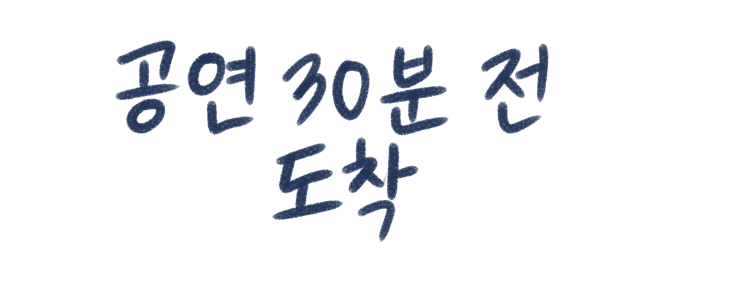 공연 30분 전
도착